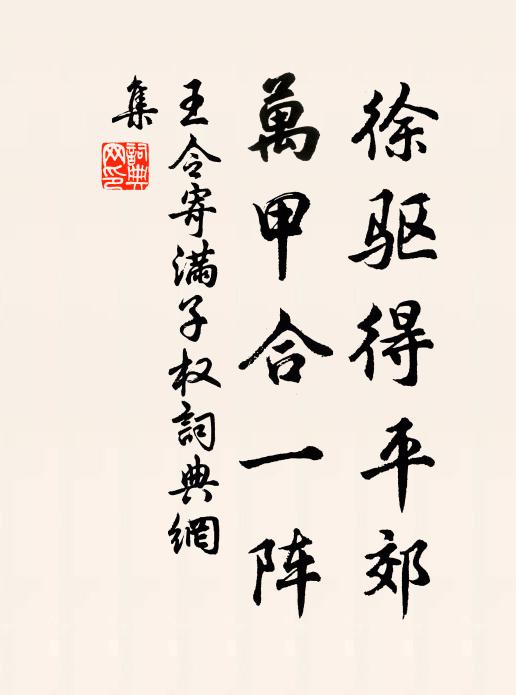 徐驱得平郊
萬甲合一阵
王令寄满子权詞典網
集
詞典
网印